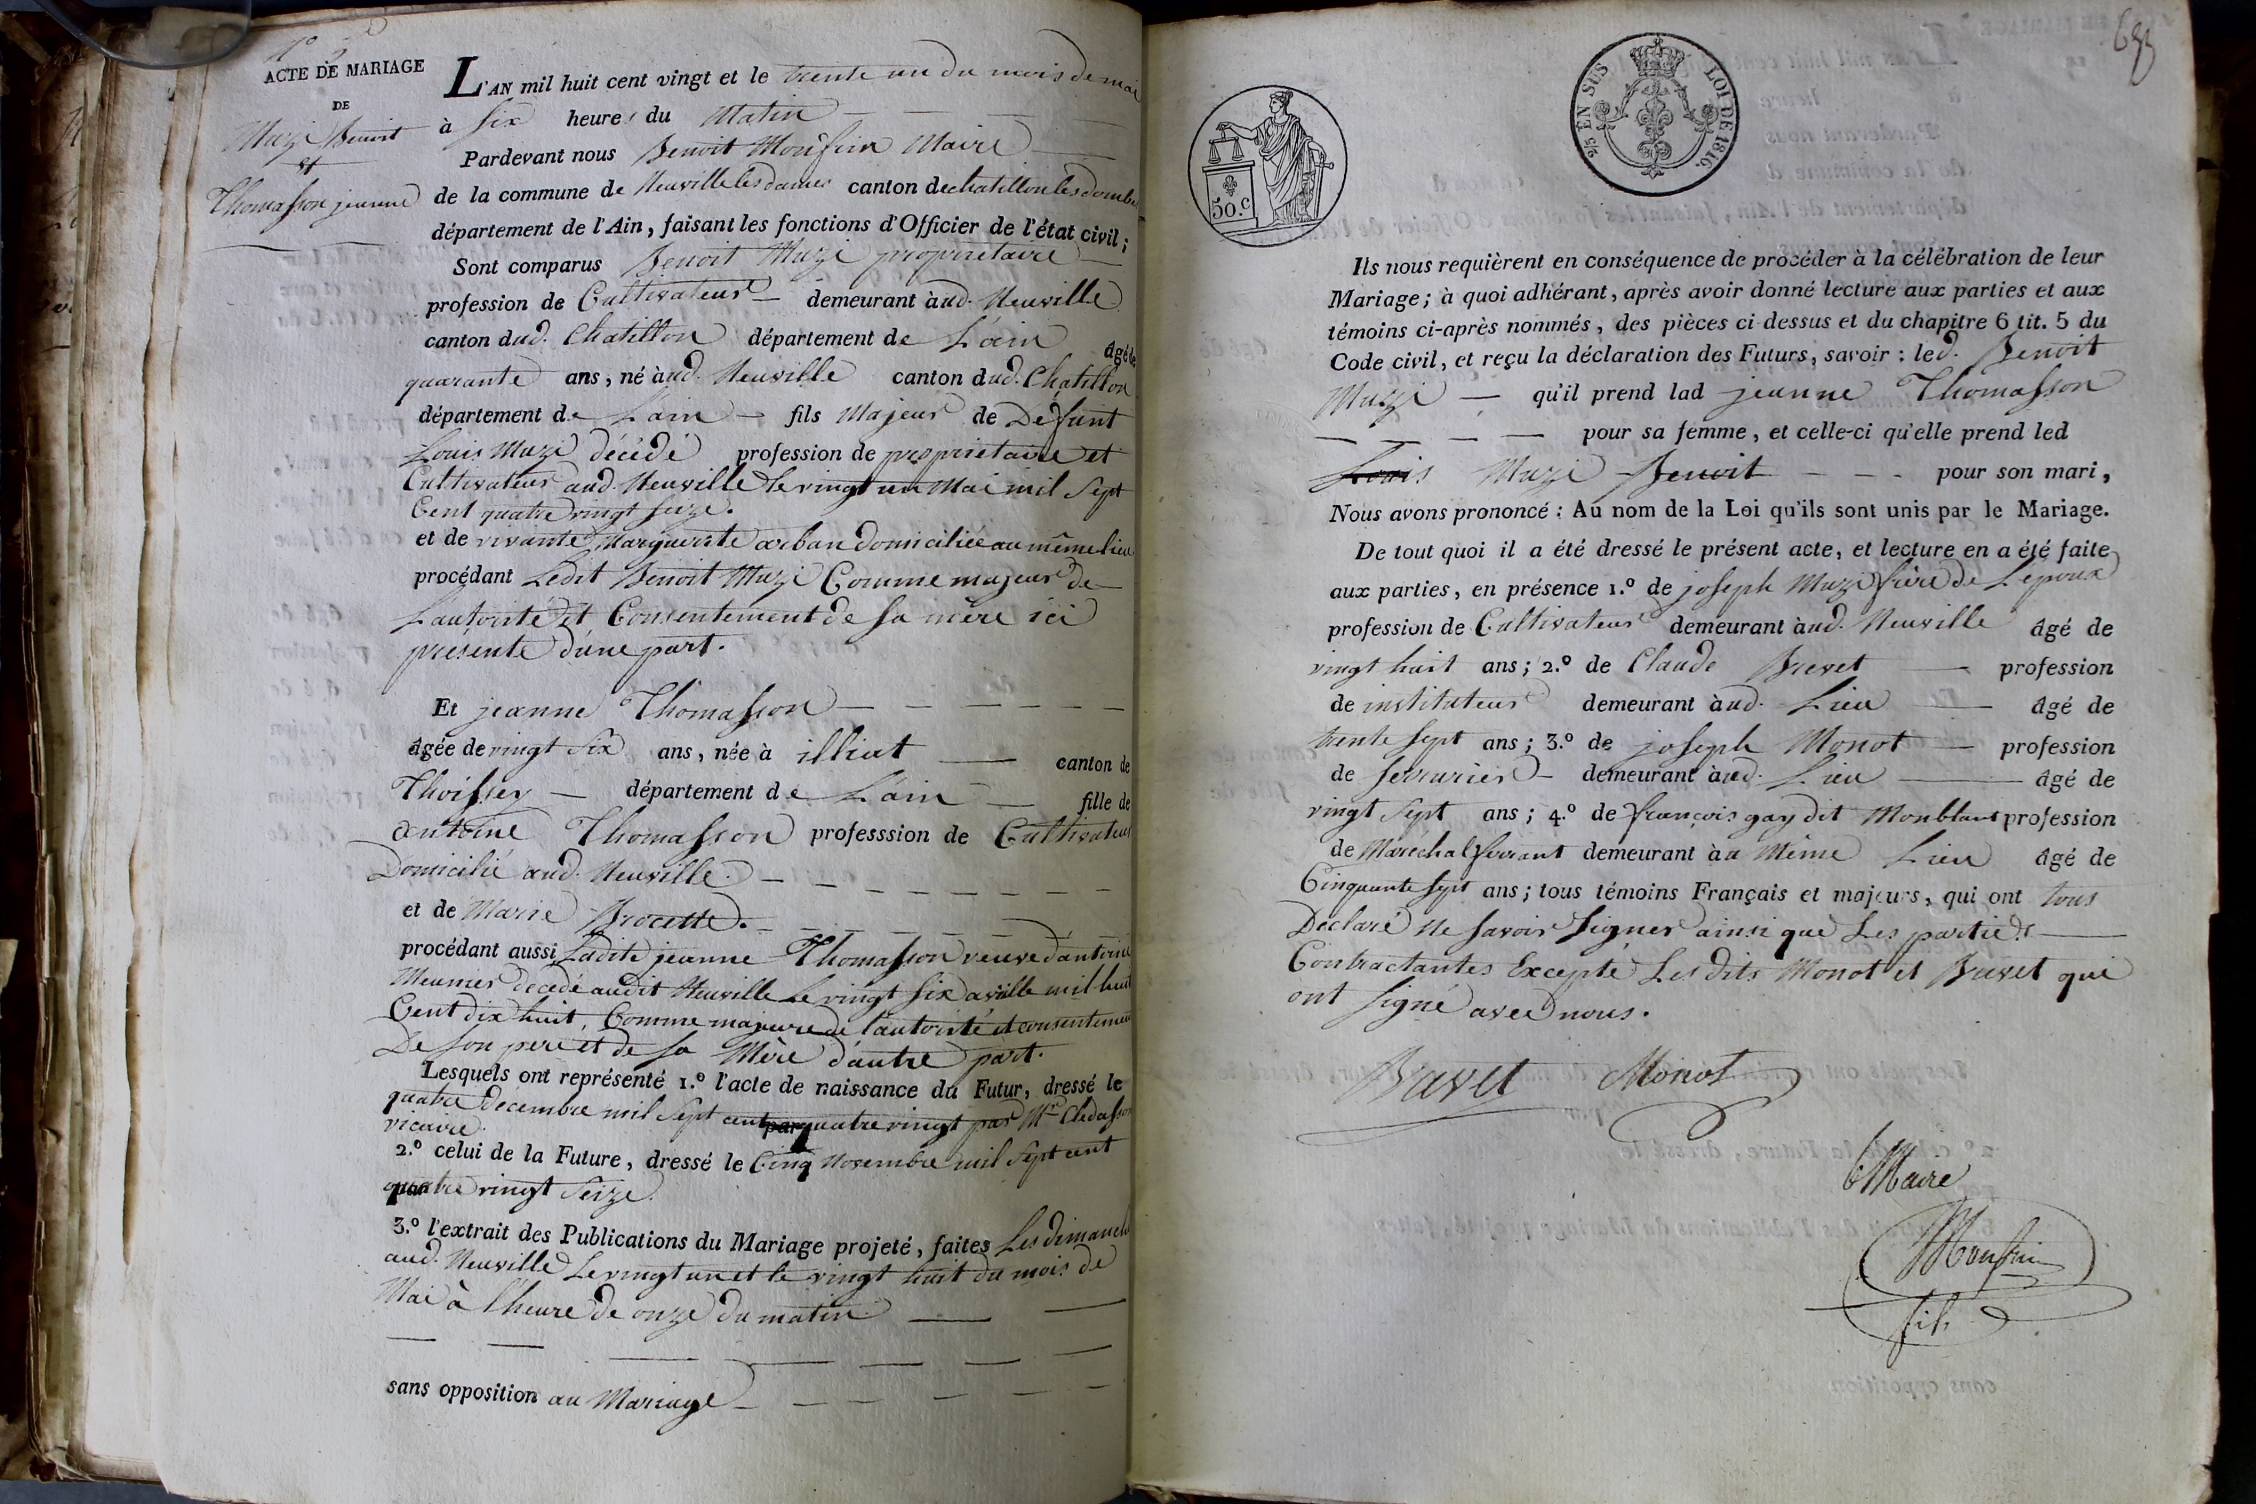 N.º 5
ACTE DE MARIAGE
DE
Muzi Benoit
et
Thomasson jeanne
L'AN mil huit cent vingt et le trente un du mois de mai
à six heures du Matin
Pardevant nous Benoit Monfrin Maire
de la commune de Neuville les dames canton de chatillon les dombes
département de l'Ain, faisant les fonctions d'Officier de l'état civil;
Sont comparus Benoit Muzi proprietaire
profession de Cultivateur demeurant à aud. Neuville
canton dud. Chatillon département de L'ain âgé de
quarante ans, né à aud. Neuville canton dud. Chatillon
département de L'ain fils Majeur de Défunt
Louis Muzi décédé profession de proprietaire et
Cultivateur aud. Neuville le vingt un Mai mil Sept
Cent quatre vingt seize.
et de vivante Marguerite arban domiciliée au même lieu
procédant Ledit Benoit Muzi Comme majeur de
L'autorité et Consentement de sa mère ici
présente d'une part.
Et jeanne Thomasson
âgée de vingt six ans, née à illiat canton de
Thoissey département de L'ain fille de
antoine Thomasson professsion de Cultivateur
Domicilié aud. Neuville.
et de Marie Brocette.
procédant aussi Ladite jeanne Thomasson veuve d'antoine
Meunier décédé audit Neuville le vingt six aville mil huit
Cent dix huit, Comme majeure de l'autorité et consentement
De son pere et de sa Mère d'autre part.
Lesquels ont représenté 1.º l'acte de naissance du Futur, dressé le
quatre decembre mil Sept cent quatre vingt par Mr.
vicaire.
2.º celui de la Future, dressé le Cinq Novembre mil Sept cent
quatre vingt Seize.
3.º l'extrait des Publications du Mariage projeté, faites Les dimanches
aud. Neuville Le vingt un et le vingt huit du mois de
Mai à l'heure de onze du matin.
sans opposition au Mariage
633
50.C
2/5 EN SUS LOI DE 1816.
Ils nous requièrent en conséquence de procéder à la célébration de leur
Mariage; à quoi adhérant, après avoir donné lecture aux parties et aux
témoins ci-après nommés, des pièces ci dessus et du chapitre 6 tit. 5 du
Code civil, et reçu la déclaration des Futurs, savoir: led. Benoit
Muzi qu'il prend lad jeanne Thomasson
pour sa femme, et celle-ci qu'elle prend led
Louis Muzi Benoit pour son mari,
Nous avons prononcé: Au nom de la Loi qu'ils sont unis par le Mariage.
De tout quoi il a été dressé le présent acte, et lecture en a été faite
aux parties, en présence 1.º de joseph Muzi frère de L'epoux
profession de Cultivateur demeurant à aud. Neuville âgé de
vingt huit ans; 2.º de Claude Brevet profession
de instituteur demeurant à aud. Lieu âgé de
trente Sept ans; 3.º de joseph Monot profession
de serrurier demeurant à aud. Lieu âgé de
vingt Sept ans; 4.º de françois gay dit Monblant profession
de Maréchal ferrant demeurant à au Même Lieu âgé de
Cinquante Sept ans; tous témoins Français et majeurs, qui ont tous
Déclaré Ne Savoir Signer ainsi que Les parties
Contractantes Excepté Les dits Monot et Bravet qui
ont signé avec nous.
Bravet Monot
Maire
Monfrin
fils